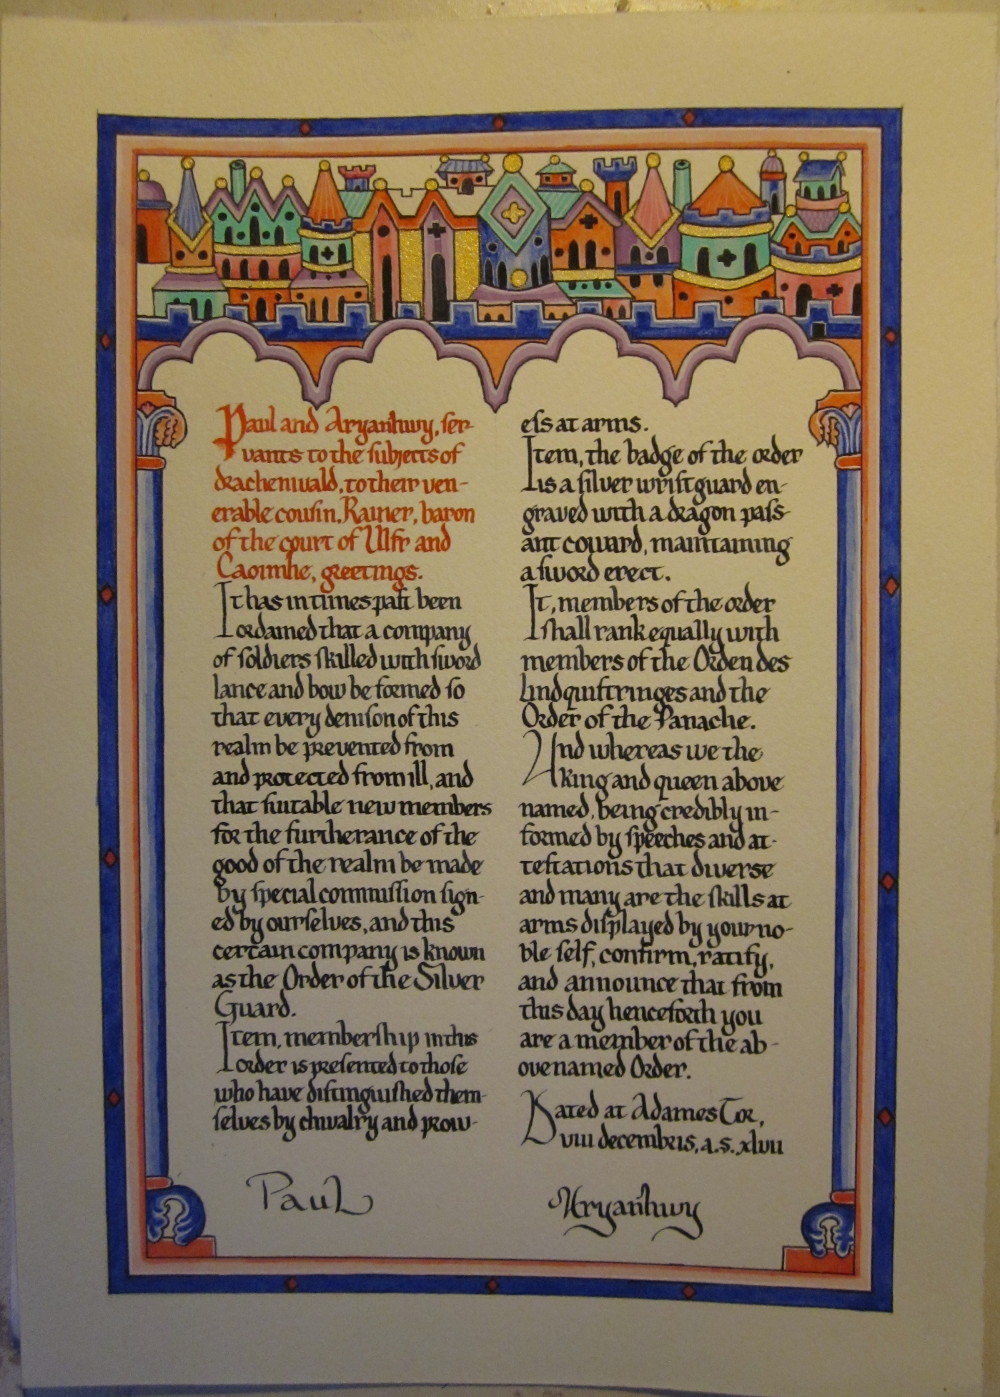 Paul and Aryanhwy, ser-
vants to the subjects of
drachenwald, to their ven-
erable cousin, Rainer, baron
of the court of Ulfr and
Caoimhe, greetings.
It has in times past been
ordained that a company
of soldiers skilled with sword
lance and bow be formed so
that every denison of this
realm be prevented from
and protected from ill, and
that suitable new members
for the furtherance of the
good of the realm be made
by special commission sign-
ed by ourselves, and this
certain company is known
as the Order of the Silver
Guard.
Item, membership in this
order is presented to those
who have distinguished them-
selves by chivalry and prow-
ess at arms.
Item, the badge of the order
is a silver wrist guard en-
graved with a dragon pass-
ant coward, maintaining
a sword erect.
It, members of the order
shall rank equally with
members of the Orden des
Lindquistringes and the
Order of the Panache.
And whereas we the
king and queen above
named, being credibly in-
formed by speeches and at-
testations that diverse
and many are the skills at
arms displayed by your no-
ble self, confirm, ratify,
and announce that from
this day henceforth you
are a member of the ab-
ovenamed Order.
Dated at Adames Tor,
viii decembris, a.s. xlvii
Paul
Aryanhwy